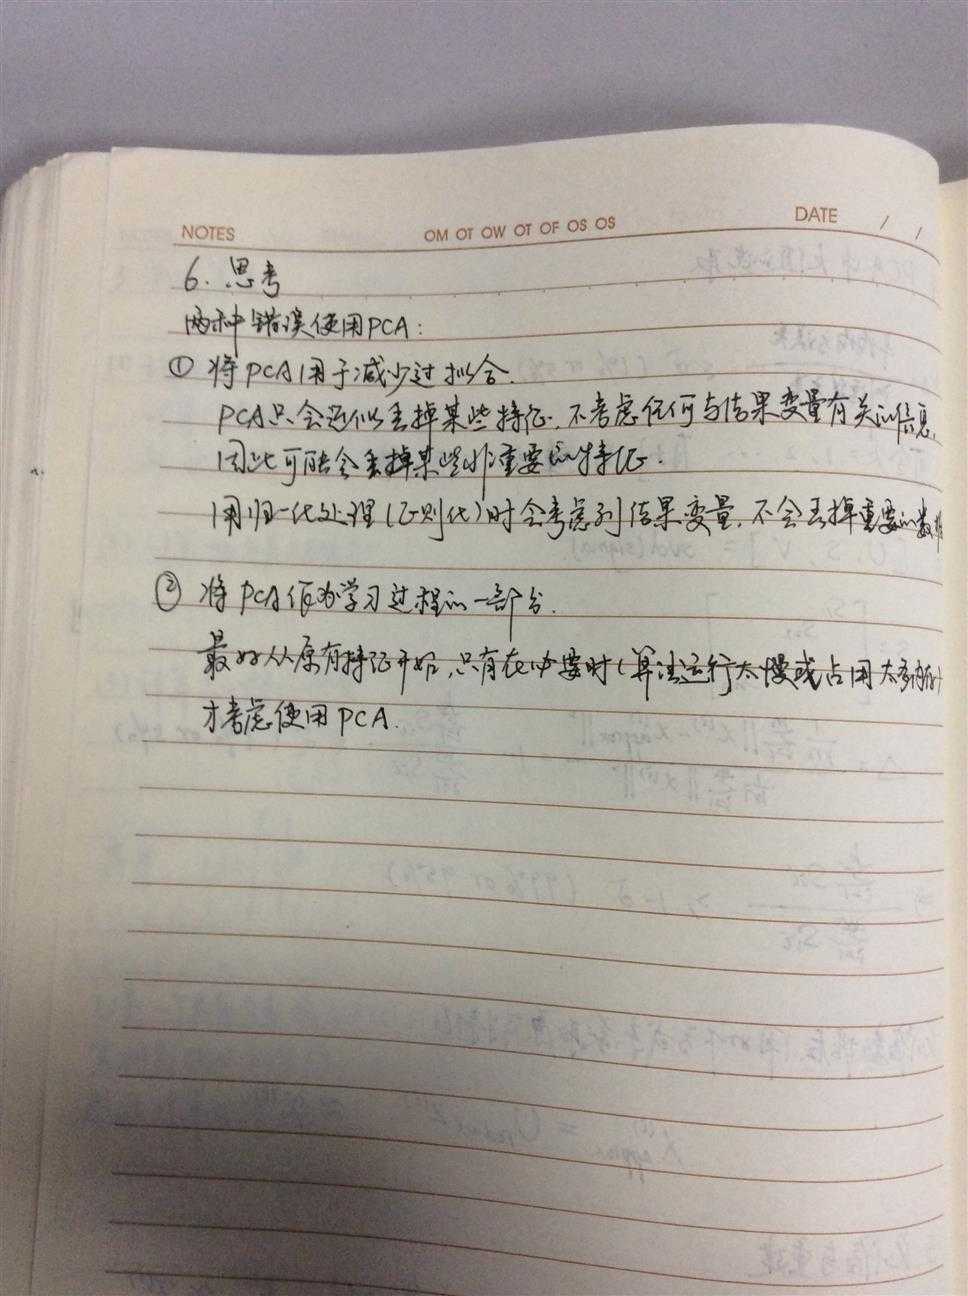 NOTES
OM OT OW OT OF OS OS
DATE / /
6. 思考
两种错误使用PCA:
① 将PCA用于减少过拟合.
PCA只会近似丢掉某些特征,不考虑任何与结果变量有关的信息,
因此可能会丢掉某些非重要的特征.
用归一化处理(正则化)时会考虑到结果变量,不会丢掉重要的数据
② 将PCA作为学习过程的一部分.
最好从原有特征开始,只有在必要时(算法运行太慢或占用太多内存)
才考虑使用PCA.